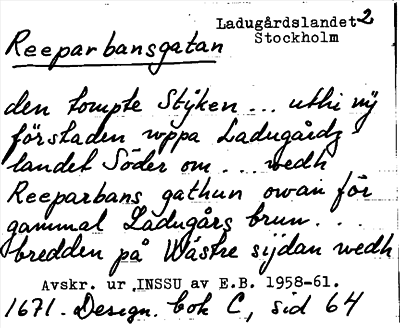 Ladugårdslandet 2
Stockholm
Reeparbansgatan
den tompte Stÿken ... uthi nÿ
förstaden uppa Ladugårdz
landet Söder om ... wedh
Reeparbans gathun owan för
gammal Ladugårs brun ...
bredden på Wästre sijdan wedh
Avskr. ur INSSU av E.B. 1958-61.
1671. Design. bok C, sid 64